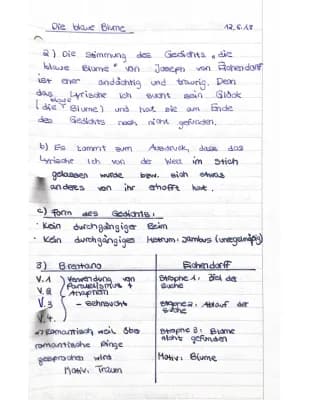 Die blaue Blume 12.6.18
2) Die Stimmung des Gedichts „die
blaue Blume" von Joseph von Eichendorff
ist eher andächtig und traurig. Denn
das Lyrische Ich sucht sein Glück
(die blaue Blume) und hat sie am Ende
des Gedichts noch nicht gefunden.
b) Es kommt zum Ausdruck, dass das
Lyrische Ich von der Welt im Stich
gelassen wurde bzw. sich etwas
anderes von ihr erhofft hat.
c) Form des Gedichts:
- Kein durchgängiger Reim
- Kein durchgängiges Metrum: Jambus (unregelmäßig)
3) Brentano Eichendorff
V.1 Verwendung von Strophe 1: Ziel der
V.2 Parallelismus + Suche
Anaphern
V.3 - Sehnsucht Strophe 2: Ablauf der
V.4. Suche
Romantisch weil über Strophe 3: Blume
romantische Dinge nicht gefunden
gesprochen wird Motiv: Blume
Motiv: Traum